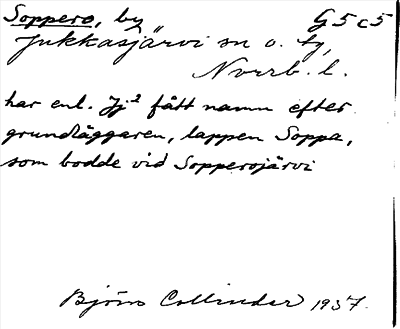 Soppero, by G5c5
Jukkasjärvi sn o. tg,
Norrb. l.
har enl. Jj² fått namn efter
grundläggaren, lappen Soppa,
som bodde vid Sopperojärvi
Björn Collinder 1937.